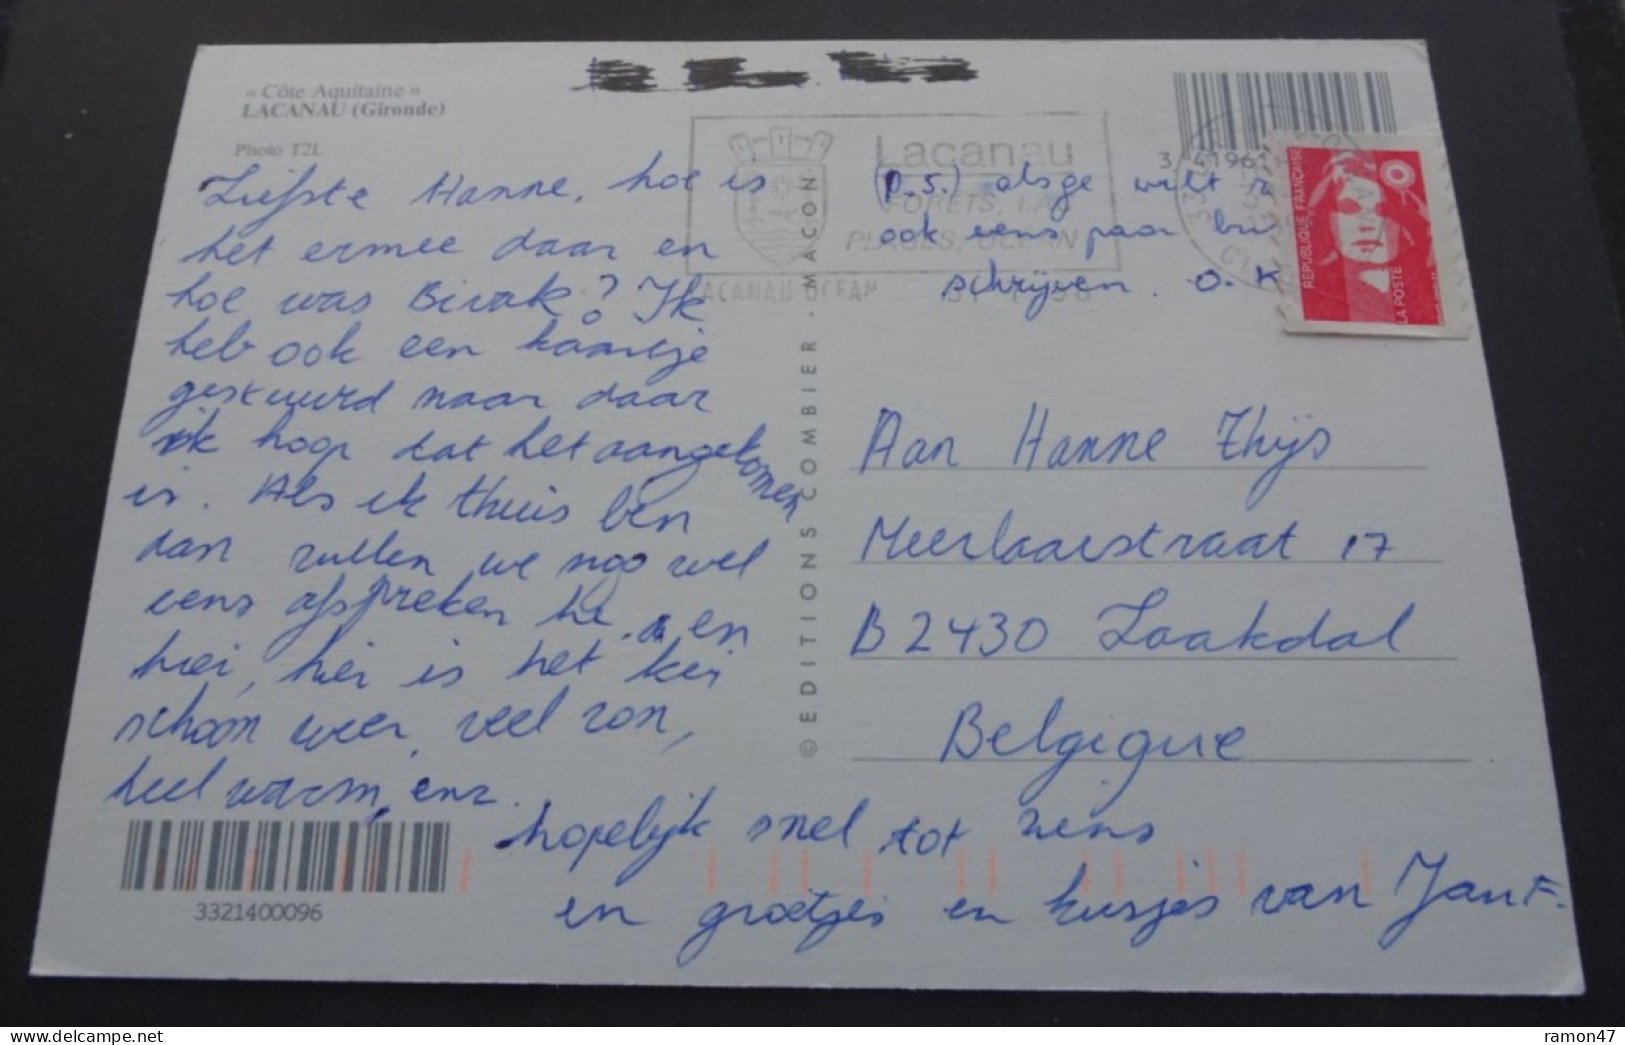 « Côte Aquitaine »
LACANAU (Gironde)
Photo T2L
Liefste Hanne, hoe is
het ermee daar en
hoe was Bivak? Ik
heb ook een kaartje
gestuurd naar daar
ik hoop dat het aangekomen
is. Als ik thuis ben
dan zullen we noo wel
eens afspreken he. en
hier, hier is het kei
schoon weer, veel zon,
heel warm, enz.
hopelijk snel tot ziens
en groetjes en kusjes van Jan F.
3321400096
© EDITIONS COMBIER - MACON
Lacanau
FORETS, LAC
PLAGES, OCEAN
LACANAU OCEAN
(P.S.) alsge wilt
ook eens paar
schrijven. O.K
REPUBLIQUE FRANÇAISE
LA POSTE
Aan Hanne Thijs
Meerlaarstraat 17
B 2430 Laakdal
Belgique
ramon47